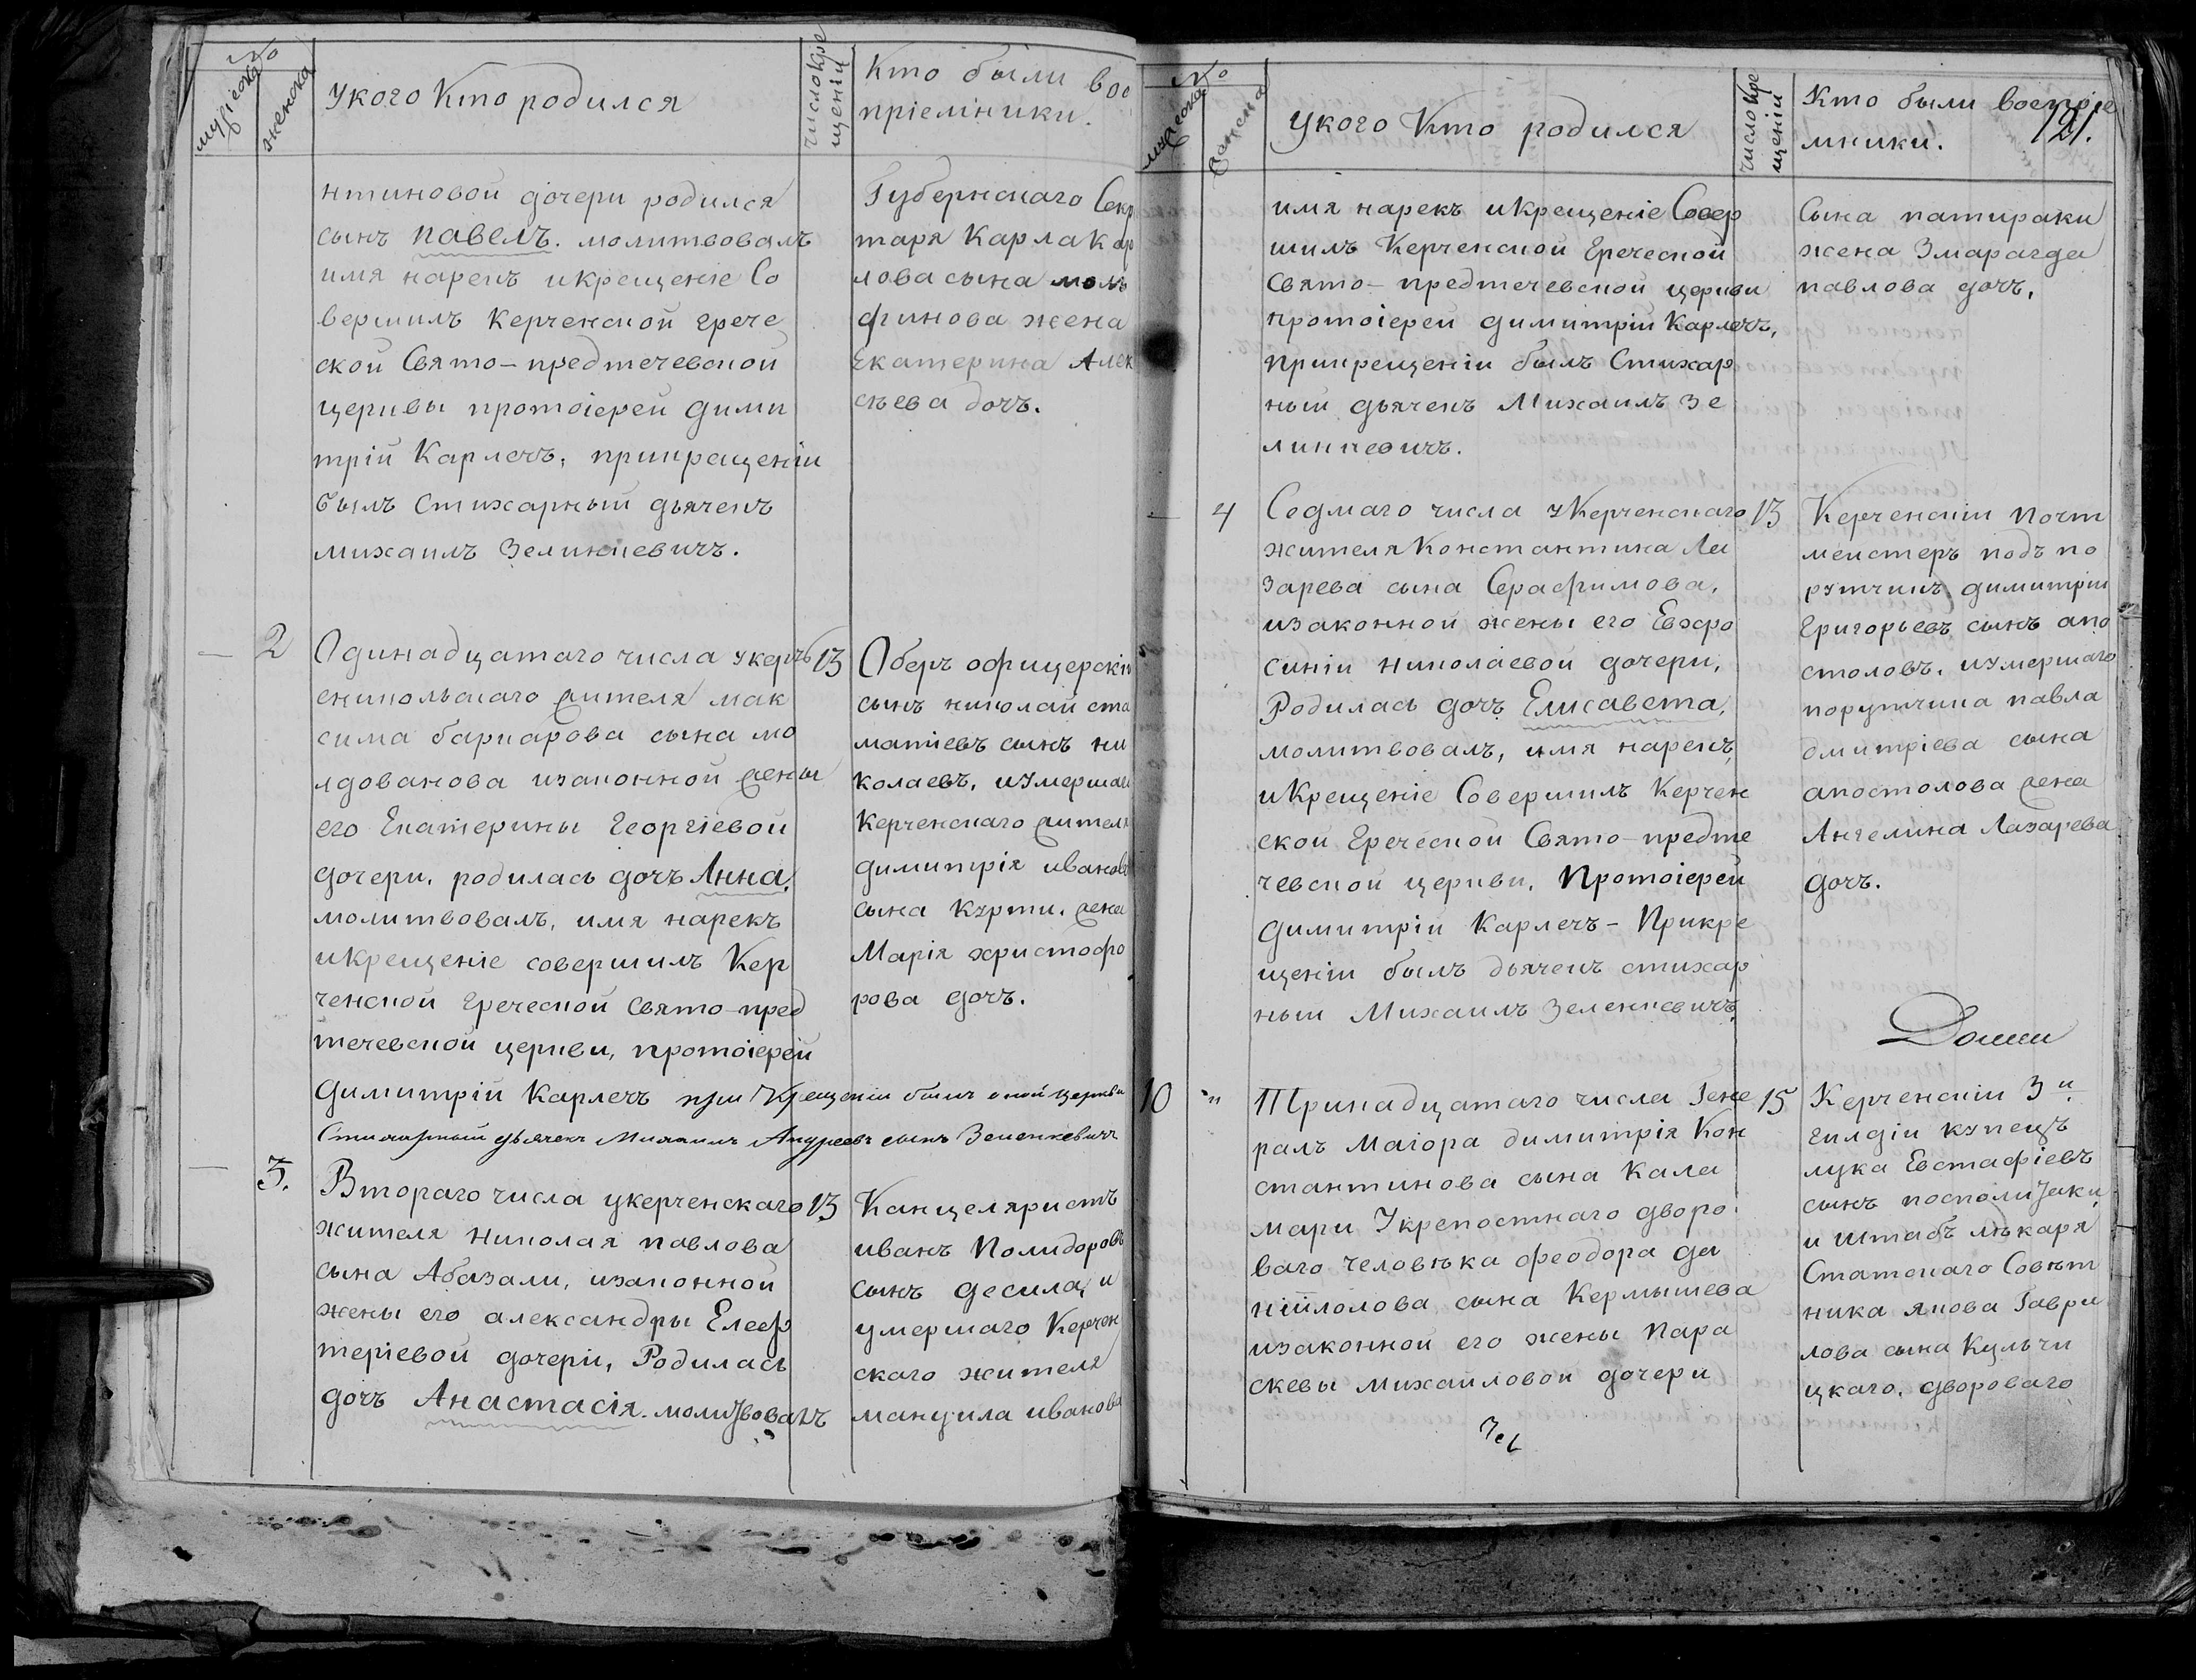 №
мужеска
женска
У кого Кто родился
число Кре
щенія
Кто были вос
пріемники.
нтиновой дочери родился
сынъ павелъ. молитвовалъ
имя нарекъ и Крещеніе Со
вершилъ Керченской грече
ской Свято-предтечевской
церквы протоіерей дими
трій Карлечъ, при крещеніи
былъ Стихарный дьячекъ
михаилъ Зелинкевичъ.
Губернскаго Секр
таря Карла Кар
лова сына
финова жена
Екатерина Алек
сѣева дочъ.
2
Одинадцатаго числа у керчъ
еникольскаго жителя мак
сима
сына мо
лдованова и законной жены
его Екатерины Георгіевой
дочери, родилась дочъ Анна,
молитвовалъ, имя нарекъ
и Крещеніе совершилъ Кер
ченской Греческой Свято-пред
течевской церкви, протоіерей
Димитрій Карлечъ при Крещеніи былъ оной Церкви
Стихарный дьячекъ Михаилъ Андреевъ сынъ Зеленкевичъ
13
Оберъ офицерскій
сынъ николай ста
матіевъ сынъ ни
колаевъ, и умершаго
Керченскаго жителя
димитрія иванова
сына Курти, жена
Марія христофо
рова дочъ.
3.
Втораго числа у керченскаго
жителя николая павлова
сына Абазали, и законной
жены его александры Елеф
теріевой дочери, Родилась
дочъ Анастасія. молитвовалъ
13
Канцеляристъ
иванъ Полидоровъ
сынъ десила, и
умершаго Керчен
скаго жителя
мануила иванова
№
мужеска
женска
У кого Кто родился
число Кре
щеніи
Кто были воспріе
мники.
121.
имя нарекъ и Крещеніе Совер
шилъ Керченской Греческой
Свято-предтечевской церкви
протоіерей димитрій Карлечъ,
При крещеніи былъ Стихар
ный дьячекъ Михаилъ Зе
линкевичъ.
Сына патираки
жена Змарагда
павлова дочъ,
4
Седмаго числа у Керченскаго
жителя Константина Ла
зарева сына Серафимова,
и законной жены его Евхро
синіи николаевой дочери,
Родилась дочъ Елисавета,
молитвовалъ, имя нарекъ,
и Крещеніе Совершилъ Керчен
ской Греческой Свято-предте
чевской церкви, Протоіерей
Димитрій Карлечъ - При кре
щеніи былъ дьячекъ стихар
ный Михаилъ Зеленкевичъ,
13
Керченскій Почт
меистеръ подъ по
рутчикъ димитрій
Григорьевъ сынъ апо
столовъ, и умершаго
порутчика павла
дмитріева сына
апостолова жена
Ангелина Лазарева
дочъ.
10
"
Тринадцатаго числа Гене
ралъ Маіора димитрія Кон
стантинова сына Кала
мари У крепостнаго дворо
ваго человѣка феодора да
сына Кермышева
и законной его жены Пара
скевы михаиловой дочери
15
Керченскій 3й
гилдіи купецъ
лука Евстафіевъ
сынъ посполитаки
и штабъ лѣкаря
Статскаго Совѣт
ника якова Гаври
лова сына Кульчи
цкаго, двороваго